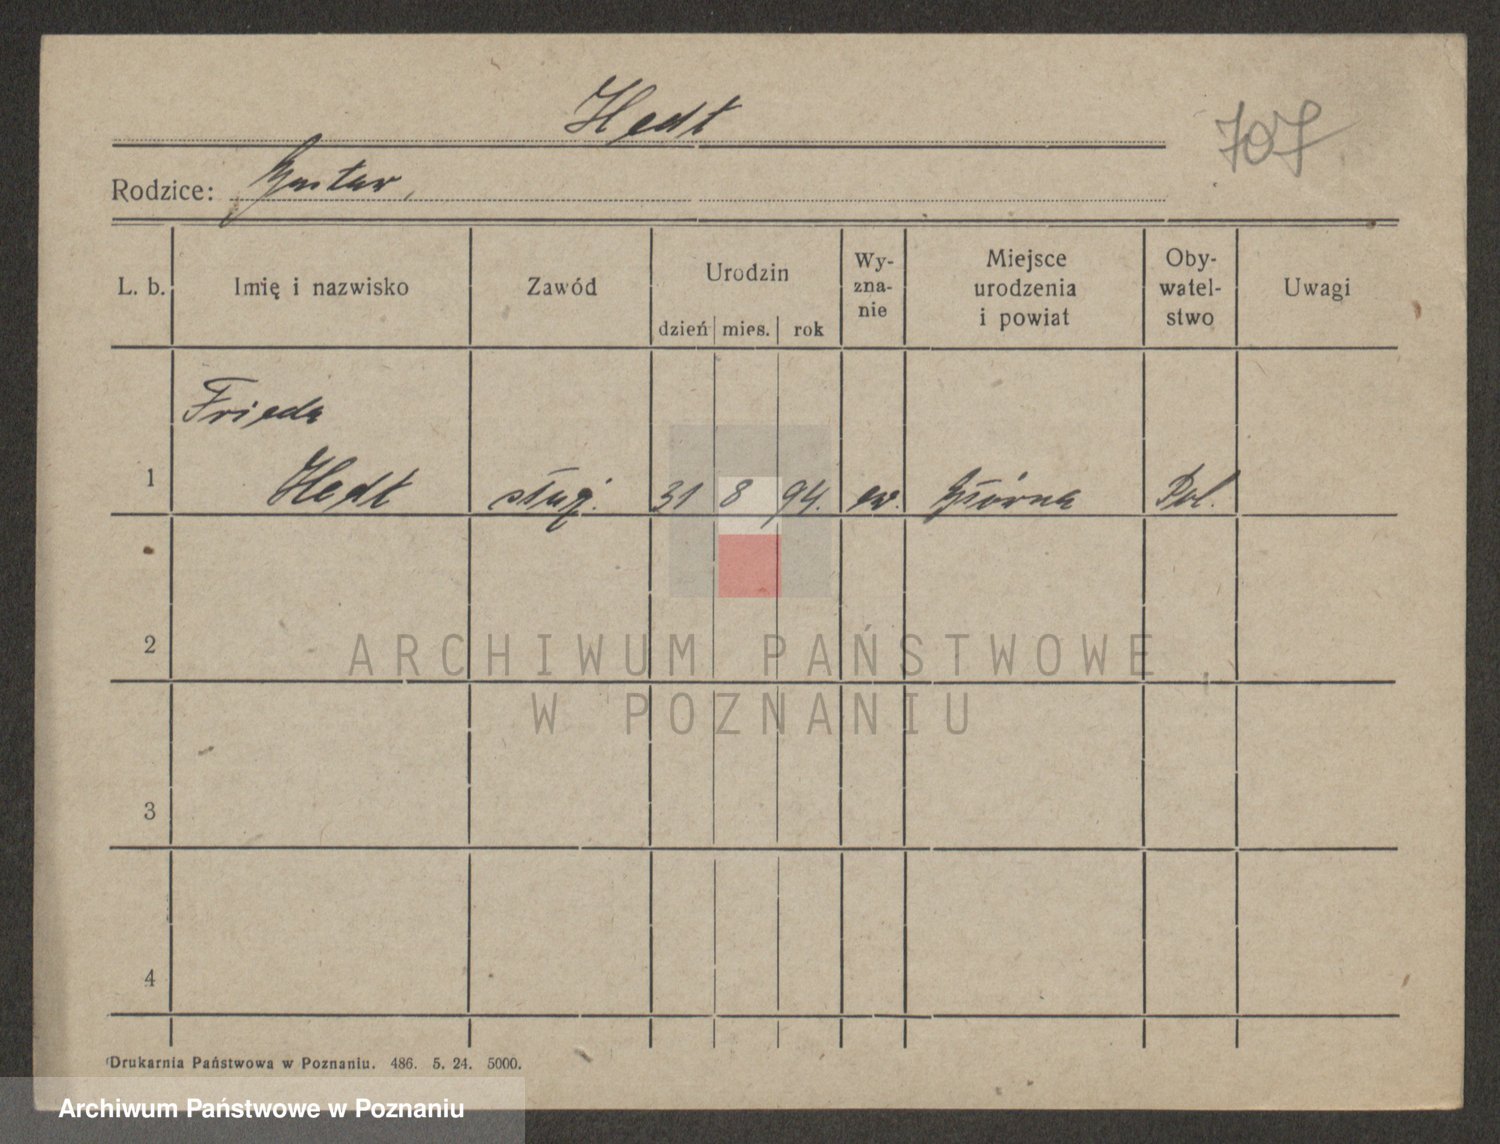 Hedt
707
Rodzice: Gustav,
L. b. Imię i nazwisko Zawód Urodzin dzień mies. rok Wy-zna-nie Miejsce urodzenia i powiat Oby-watel-stwo Uwagi
Frieda
1 Hedt służ. 31 8 94. ew. Główna Pol.
2
ARCHIWUM PAŃSTWOWE
W POZNANIU
3
4
Drukarnia Państwowa w Poznaniu. 486. 5. 24. 5000.
Archiwum Państwowe w Poznaniu